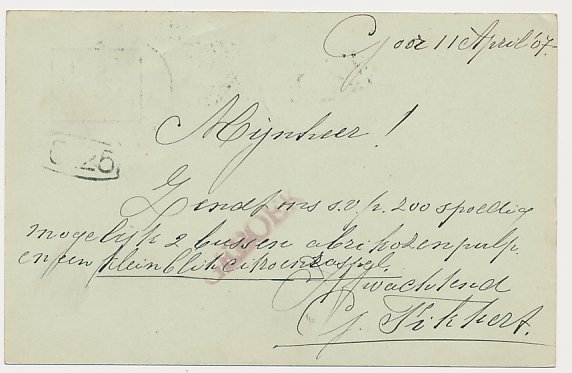 Goor 11 April '07.
Mijnheer!
Zendt ons s.v.p. zoo spoedig
mogelijk 2 bussen abrikozenpulp
en een klein blik citroenraspsel.
Afwachtend
G. Pikkert.